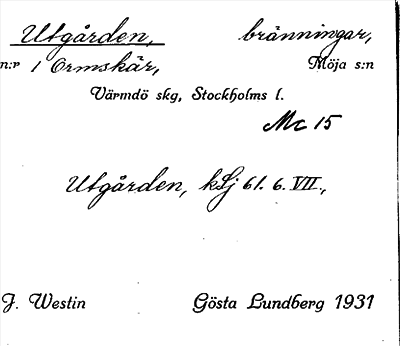 Utgården, bränningar,
n:r 1 Ormskär, Möja s:n
Värmdö skg, Stockholms l.
Mc 15
Utgården, kSj 61. 6. VII.,
J. Westin Gösta Lundberg 1931